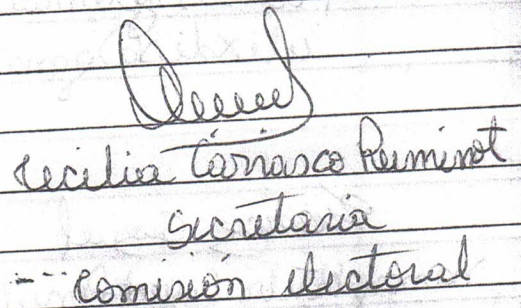 Cecilia Carrasco Reminot
Secretaria
comisión electoral